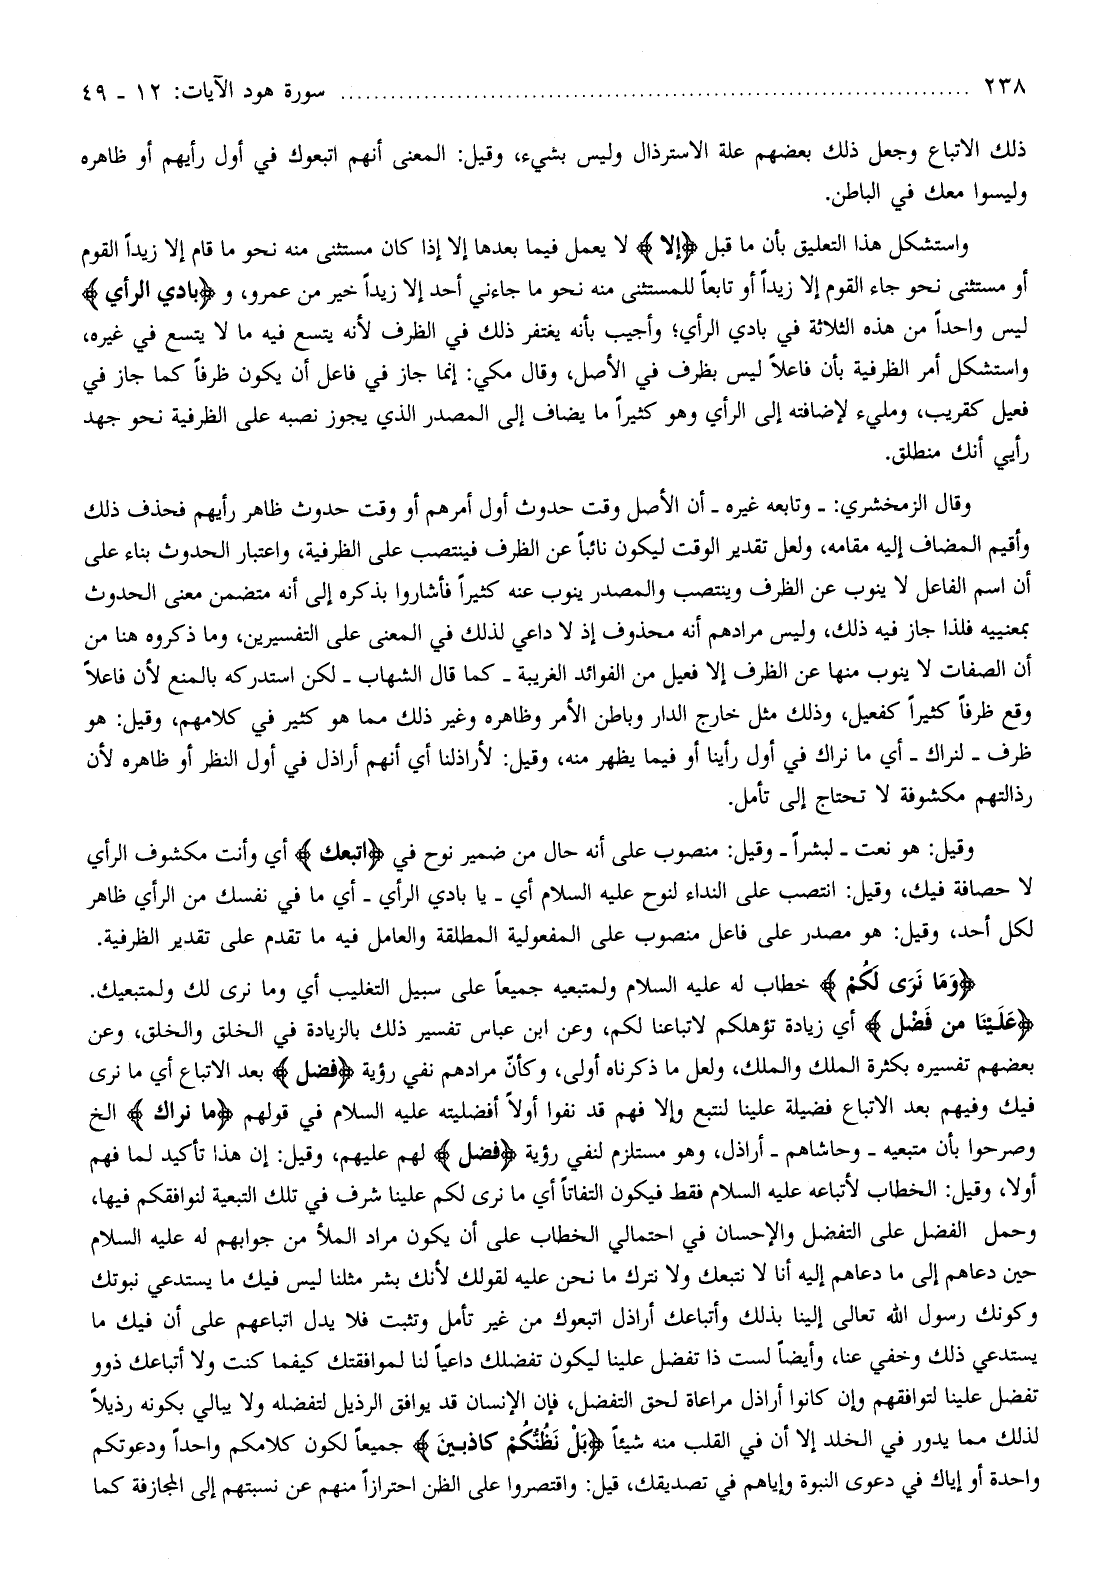 ٢٣٨ ........................................................................ سورة هود الآيات: ١٢ ـ ٤٩
ذلك الاتباع وجعل ذلك بعضهم علة الاسترذال وليس بشيء، وقيل: المعنى أنهم اتبعوك في أول رأيهم أو ظاهره
وليسوا معك في الباطن.
واستشكل هذا التعليق بأن ما قبل ﴿إلا﴾ لا يعمل فيما بعدها إلا إذا كان مستثنى منه نحو ما قام إلا زيداً القوم
أو مستثنى نحو جاء القوم إلا زيداً أو تابعاً للمستثنى منه نحو ما جاءني أحد إلا زيداً خير من عمرو، و ﴿بادي الرأي﴾
ليس واحداً من هذه الثلاثة في بادي الرأي؛ وأجيب بأنه يغتفر ذلك في الظرف لأنه يتسع فيه ما لا يتسع في غيره،
واستشكل أمر الظرفية بأن فاعلاً ليس بظرف في الأصل، وقال مكي: إنما جاز في فاعل أن يكون ظرفاً كما جاز في
فعيل كقريب، ومليء لإضافته إلى الرأي وهو كثيراً ما يضاف إلى المصدر الذي يجوز نصبه على الظرفية نحو جهد
رأيي أنك منطلق.
وقال الزمخشري: ـ وتابعه غيره ـ أن الأصل وقت حدوث أول أمرهم أو وقت حدوث ظاهر رأيهم فحذف ذلك
وأقيم المضاف إليه مقامه، ولعل تقدير الوقت ليكون نائباً عن الظرف فينتصب على الظرفية، واعتبار الحدوث بناء على
أن اسم الفاعل لا ينوب عن الظرف وينتصب والمصدر ينوب عنه كثيراً فأشاروا بذكره إلى أنه متضمن معنى الحدوث
بمعنييه فلذا جاز فيه ذلك، وليس مرادهم أنه محذوف إذ لا داعي لذلك في المعنى على التفسيرين، وما ذكروه هنا من
أن الصفات لا ينوب منها عن الظرف إلا فعيل من الفوائد الغريبة ـ كما قال الشهاب ـ لكن استدركه بالمنع لأن فاعلاً
وقع ظرفاً كثيراً كفعيل، وذلك مثل خارج الدار وباطن الأمر وظاهره وغير ذلك مما هو كثير في كلامهم، وقيل: هو
ظرف ـ لنراك ـ أي ما نراك في أول رأينا أو فيما يظهر منه، وقيل: لأراذلنا أي أنهم أراذل في أول النظر أو ظاهره لأن
رذالتهم مكشوفة لا تحتاج إلى تأمل.
وقيل: هو نعت ـ لبشراً ـ وقيل: منصوب على أنه حال من ضمير نوح في ﴿اتبعك﴾ أي وأنت مكشوف الرأي
لا حصافة فيك، وقيل: انتصب على النداء لنوح عليه السلام أي ـ يا بادي الرأي ـ أي ما في نفسك من الرأي ظاهر
لكل أحد، وقيل: هو مصدر على فاعل منصوب على المفعولية المطلقة والعامل فيه ما تقدم على تقدير الظرفية.
﴿وَمَا نَرَى لَكُمْ﴾ خطاب له عليه السلام ولمتبعيه جميعاً على سبيل التغليب أي وما نرى لك ولمتبعيك.
﴿عَلَيْنَا من فَضْل﴾ أي زيادة تؤهلكم لاتباعنا لكم، وعن ابن عباس تفسير ذلك بالزيادة في الخلق والخلق، وعن
بعضهم تفسيره بكثرة الملك والملك، ولعل ما ذكرناه أولى، وكأنّ مرادهم نفي رؤية ﴿فضل﴾ بعد الاتباع أي ما نرى
فيك وفيهم بعد الاتباع فضيلة علينا لنتبع وإلا فهم قد نفوا أولاً أفضليته عليه السلام في قولهم ﴿ما نراك﴾ الخ
وصرحوا بأن متبعيه ـ وحاشاهم ـ أراذل، وهو مستلزم لنفي رؤية ﴿فضل﴾ لهم عليهم، وقيل: إن هذا تأكيد لما فهم
أولا، وقيل: الخطاب لأتباعه عليه السلام فقط فيكون التفاتاً أي ما نرى لكم علينا شرف في تلك التبعية لنوافقكم فيها،
وحمل الفضل على التفضل والإحسان في احتمالي الخطاب على أن يكون مراد الملأ من جوابهم له عليه السلام
حين دعاهم إلى ما دعاهم إليه أنا لا نتبعك ولا نترك ما نحن عليه لقولك لأنك بشر مثلنا ليس فيك ما يستدعي نبوتك
وكونك رسول الله تعالى إلينا بذلك وأتباعك أراذل اتبعوك من غير تأمل وتثبت فلا يدل اتباعهم على أن فيك ما
يستدعي ذلك وخفي عنا، وأيضاً لست ذا تفضل علينا ليكون تفضلك داعياً لنا لموافقتك كيفما كنت ولا أتباعك ذوو
تفضل علينا لتوافقهم وإن كانوا أراذل مراعاة لحق التفضل، فإن الإنسان قد يوافق الرذيل لتفضله ولا يبالي بكونه رذيلاً
لذلك مما يدور في الخلد إلا أن في القلب منه شيئاً ﴿بَلْ نَظُنُّكُمْ كاذبينَ﴾ جميعاً لكون كلامكم واحداً ودعوتكم
واحدة أو إياك في دعوى النبوة وإياهم في تصديقك، قيل: واقتصروا على الظن احترازاً منهم عن نسبتهم إلى المجازفة كما